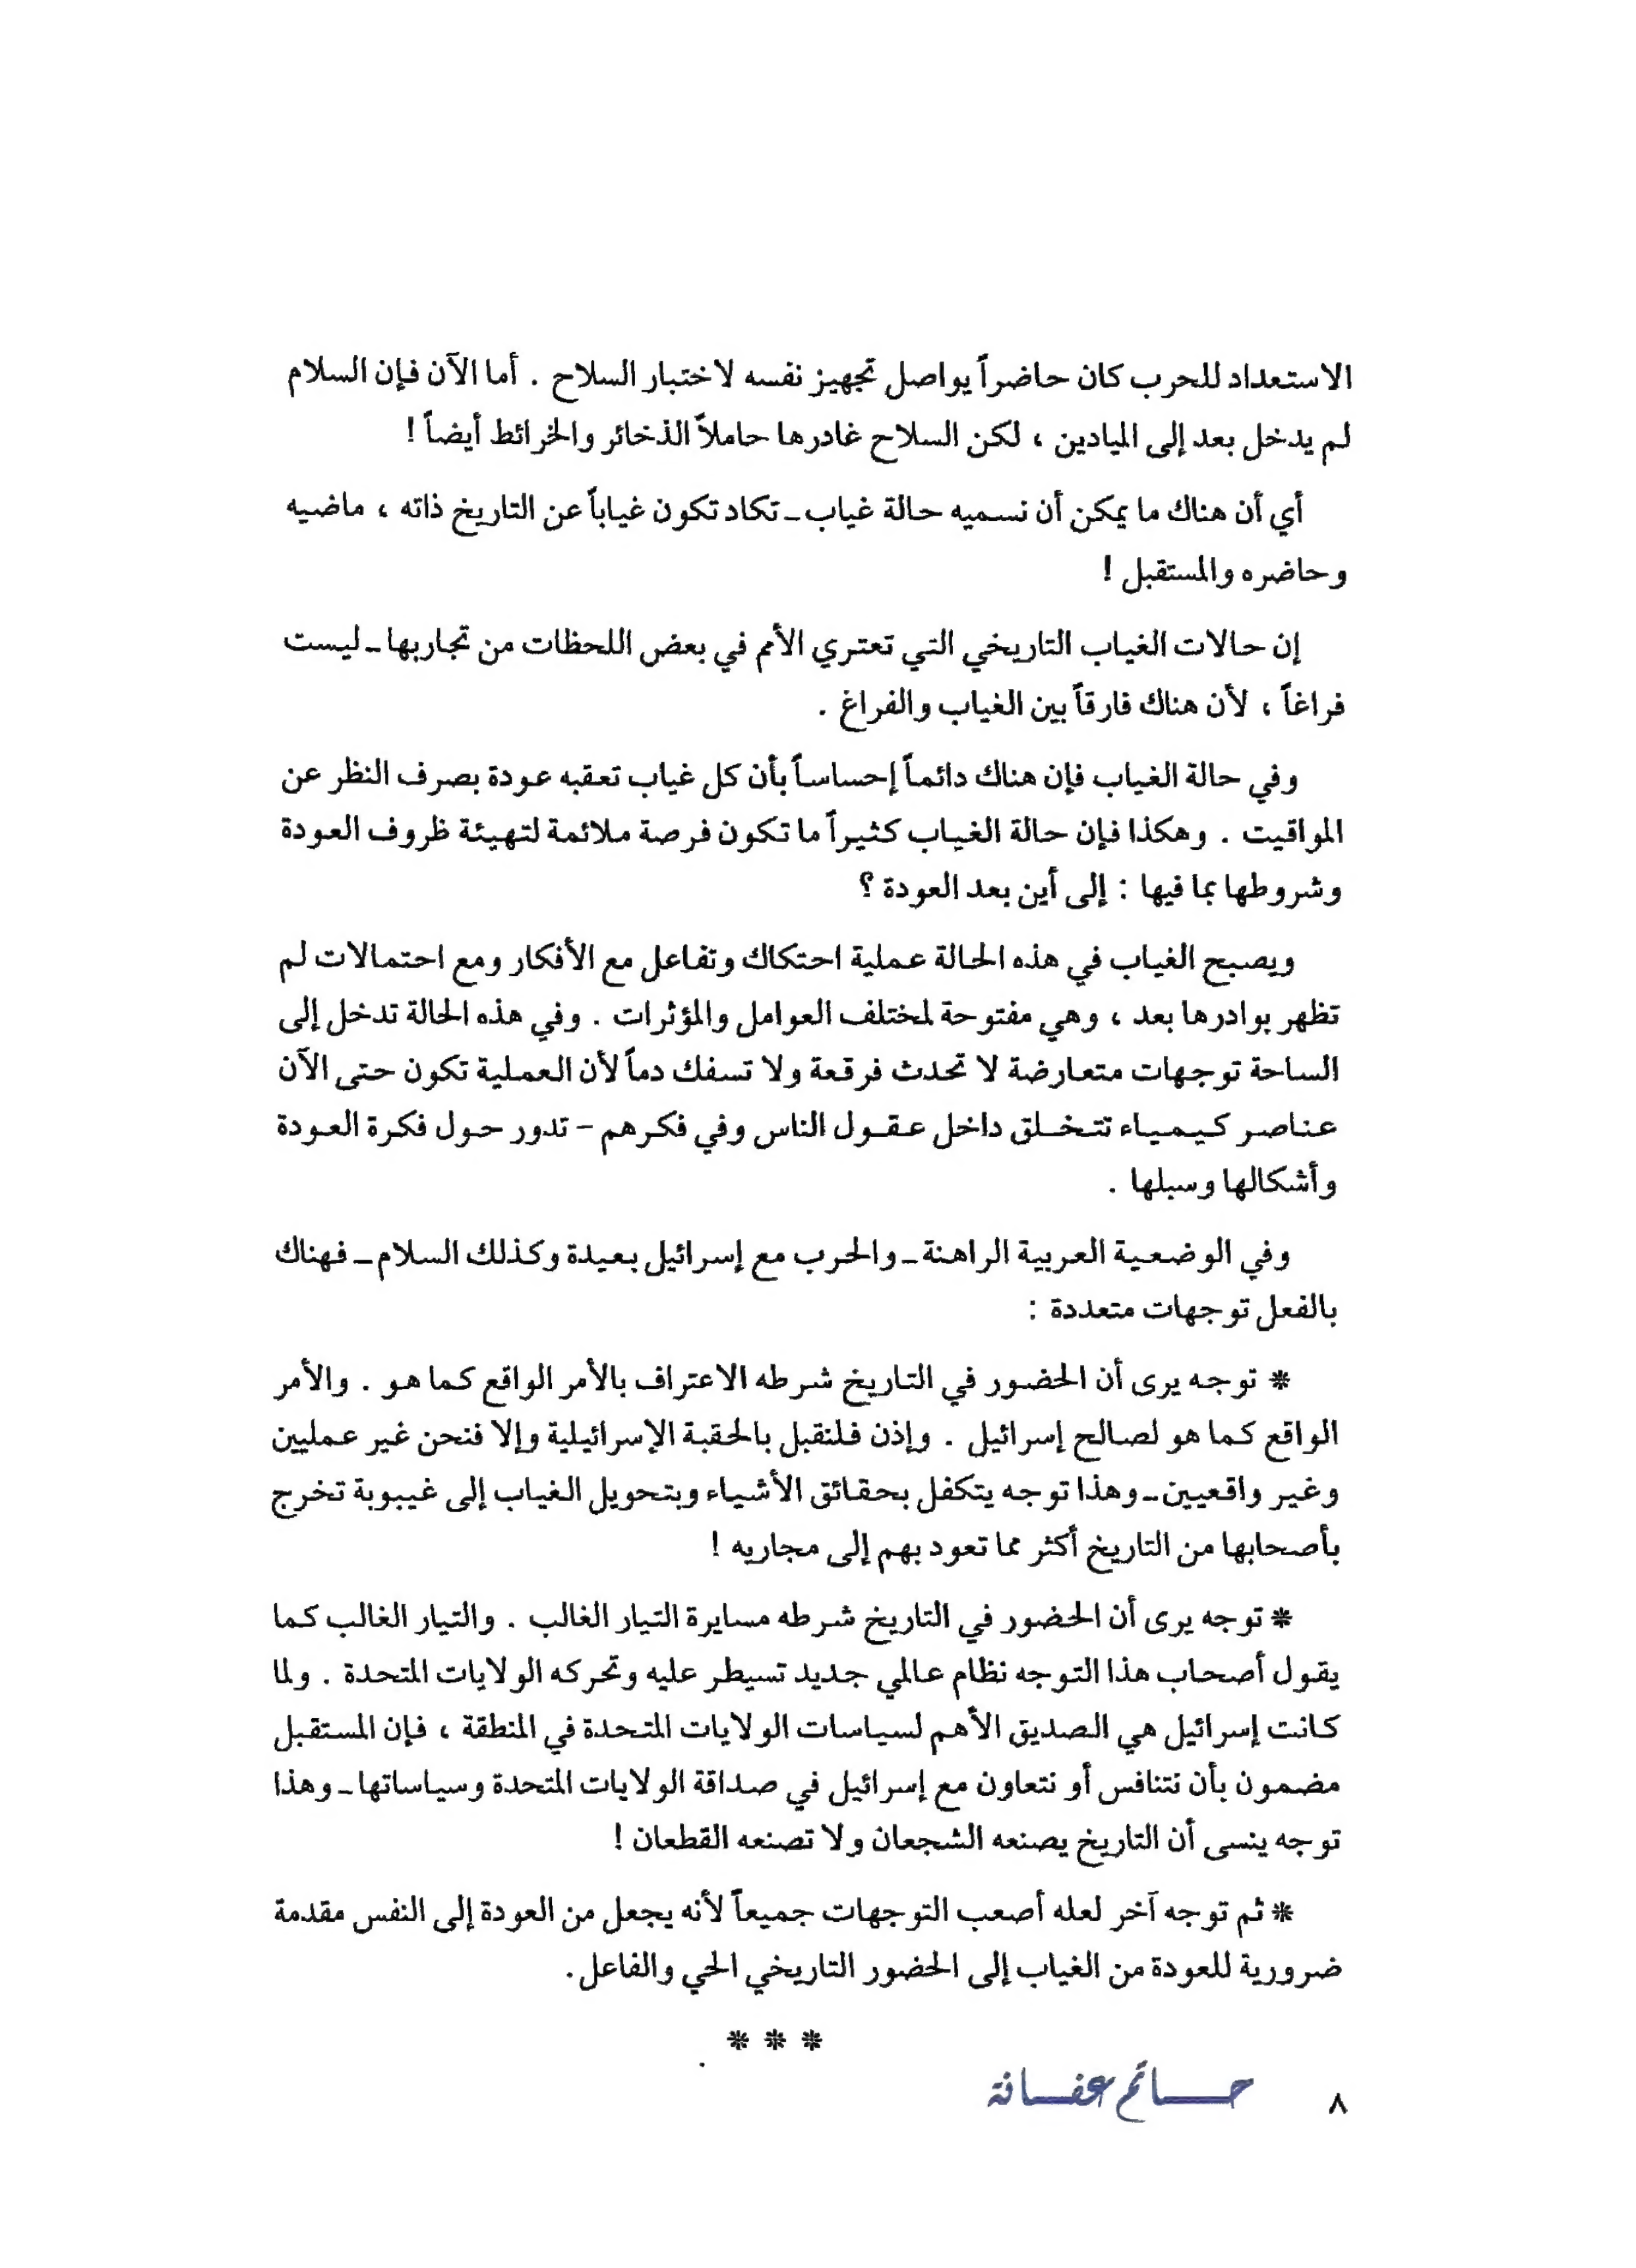 الاستعداد للحرب كان حاضراً يواصل تجهيز نفسه لاختبار السلاح . أما الآن فإن السلام
لم يدخل بعد إلى الميادين ، لكن السلاح غادرها حاملاً الذخائر والخرائط أيضاً !
أي أن هناك ما يمكن أن نسميه حالة غياب ـ تكاد تكون غياباً عن التاريخ ذاته ، ماضيه
وحاضره والمستقبل !
إن حالات الغياب التاريخي التي تعتري الأمم في بعض اللحظات من تجاربها ـ ليست
فراغاً ، لأن هناك فارقاً بين الغياب والفراغ .
وفي حالة الغياب فإن هناك دائماً إحساساً بأن كل غياب تعقبه عودة بصرف النظر عن
المواقيت . وهكذا فإن حالة الغياب كثيراً ما تكون فرصة ملائمة لتهيئة ظروف العودة
وشروطها بما فيها : إلى أين بعد العودة ؟
ويصبح الغياب في هذه الحالة عملية احتكاك وتفاعل مع الأفكار ومع احتمالات لم
تظهر بوادرها بعد ، وهي مفتوحة لمختلف العوامل والمؤثرات . وفي هذه الحالة تدخل إلى
الساحة توجهات متعارضة لا تحدث فرقعة ولا تسفك دماً لأن العملية تكون حتى الآن
عناصر كيمياء تتخلق داخل عقول الناس وفي فكرهم – تدور حول فكرة العودة
وأشكالها وسبلها .
وفي الوضعية العربية الراهنة ـ والحرب مع إسرائيل بعيدة وكذلك السلام ـ فهناك
بالفعل توجهات متعددة :
* توجه يرى أن الحضور في التاريخ شرطه الاعتراف بالأمر الواقع كما هو . والأمر
الواقع كما هو لصالح إسرائيل . وإذن فلنقبل بالحقبة الإسرائيلية وإلا فنحن غير عمليين
وغير واقعيين ـ وهذا توجه يتكفل بحقائق الأشياء وبتحويل الغياب إلى غيبوبة تخرج
بأصحابها من التاريخ أكثر مما تعود بهم إلى مجاريه !
* توجه يرى أن الحضور في التاريخ شرطه مسايرة التيار الغالب . والتيار الغالب كما
يقول أصحاب هذا التوجه نظام عالمي جديد تسيطر عليه وتحركه الولايات المتحدة . ولما
كانت إسرائيل هي الصديق الأهم لسياسات الولايات المتحدة في المنطقة ، فإن المستقبل
مضمون بأن نتنافس أو نتعاون مع إسرائيل في صداقة الولايات المتحدة وسياساتها ـ وهذا
توجه ينسى أن التاريخ يصنعه الشجعان ولا تصنعه القطعان !
* ثم توجه آخر لعله أصعب التوجهات جميعاً لأنه يجعل من العودة إلى النفس مقدمة
ضرورية للعودة من الغياب إلى الحضور التاريخي الحي والفاعل.
* * *
حـــاتم عفـــانة
٨